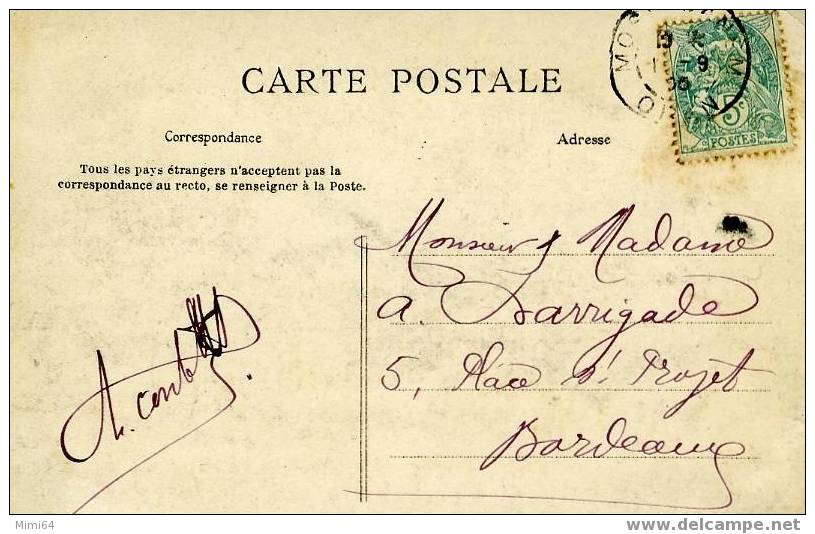 CARTE POSTALE
Correspondance
Adresse
Tous les pays étrangers n'acceptent pas la
correspondance au recto, se renseigner à la Poste.
5c
POSTES
Monsieur & Madame
A. Larrigade
5, Place St Projet
Bordeaux
Mimi64
delcampe.net